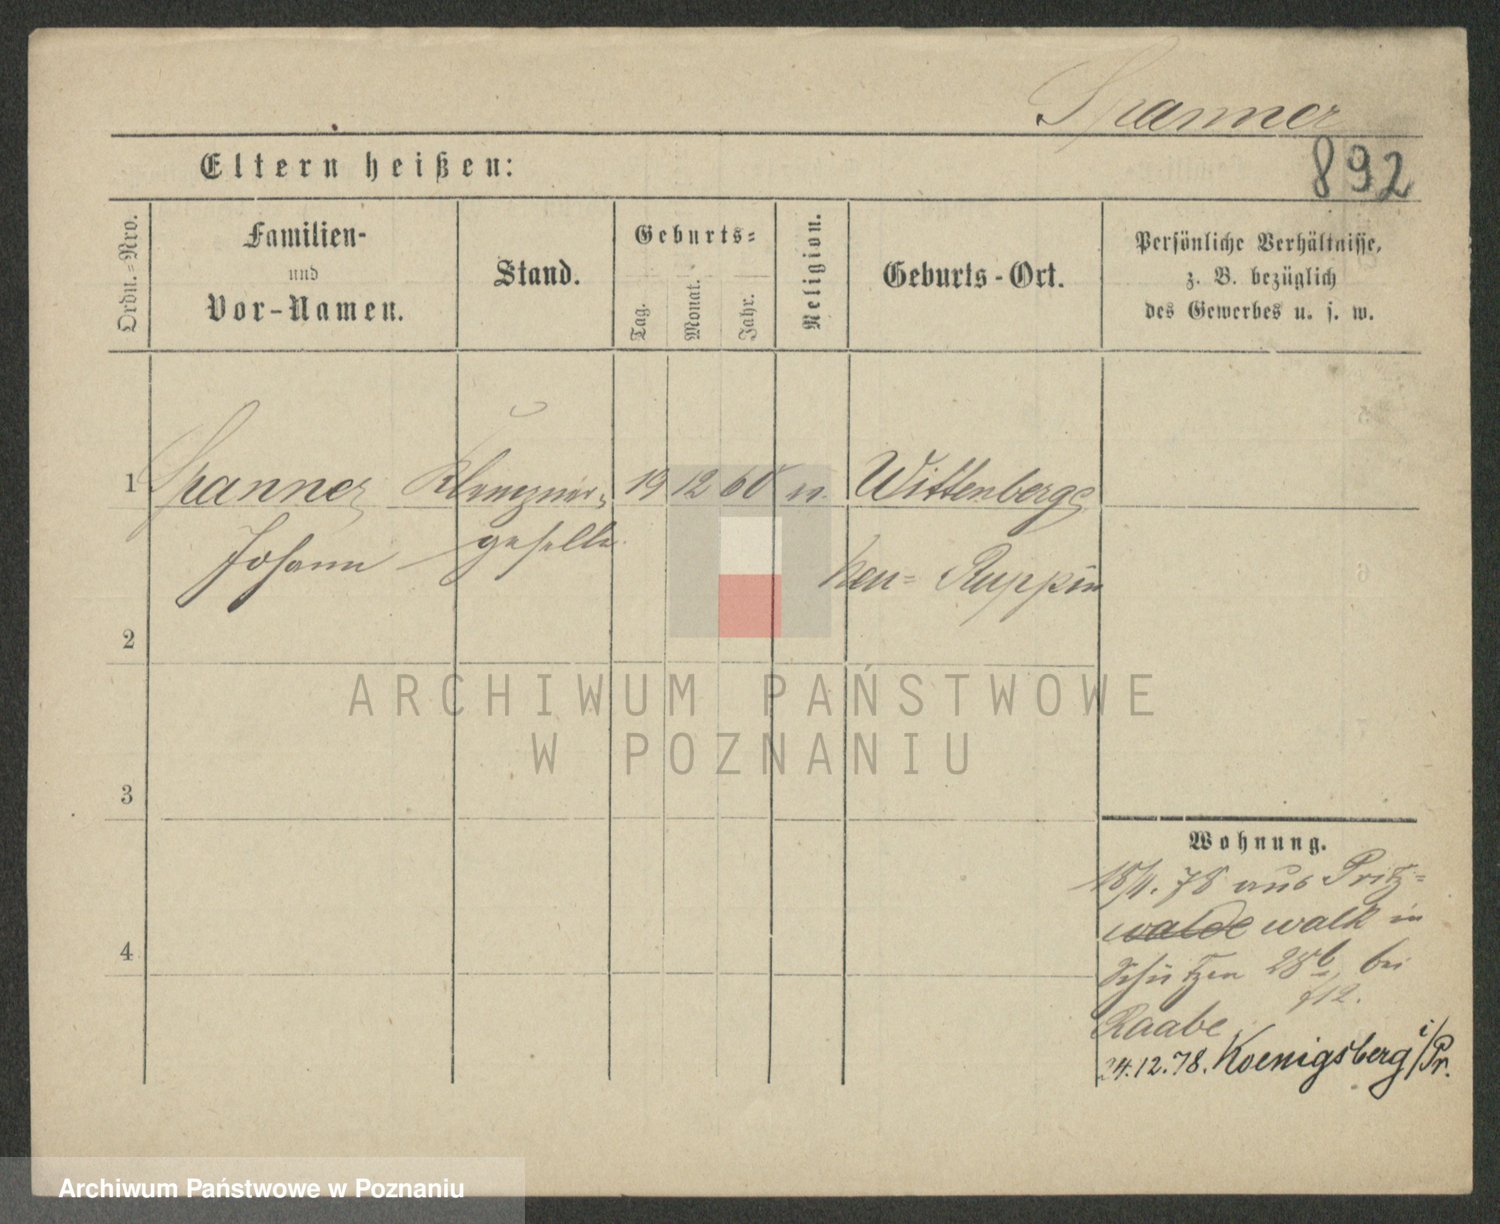 Spanner
892
Eltern heißen:
Ordn.-Nro.
Familien-
und
Vor-Namen.
Stand.
Geburts-
Tag.
Monat.
Jahr.
Religion.
Geburts-Ort.
Persönliche Verhältnisse,
z. B. bezüglich
des Gewerbes u. s. w.
1 Spanner Klempner- 19 12 60 Wittenberge
Johann geselle Neu-Ruppin
2
ARCHIWUM PAŃSTWOWE
W POZNANIU
3
Wohnung.
18/4. 78 aus Pritz-
walde walk in
Schützen 28b bei
Raabe
24.12.78. Koenigsberg i/Pr.
4
Archiwum Państwowe w Poznaniu